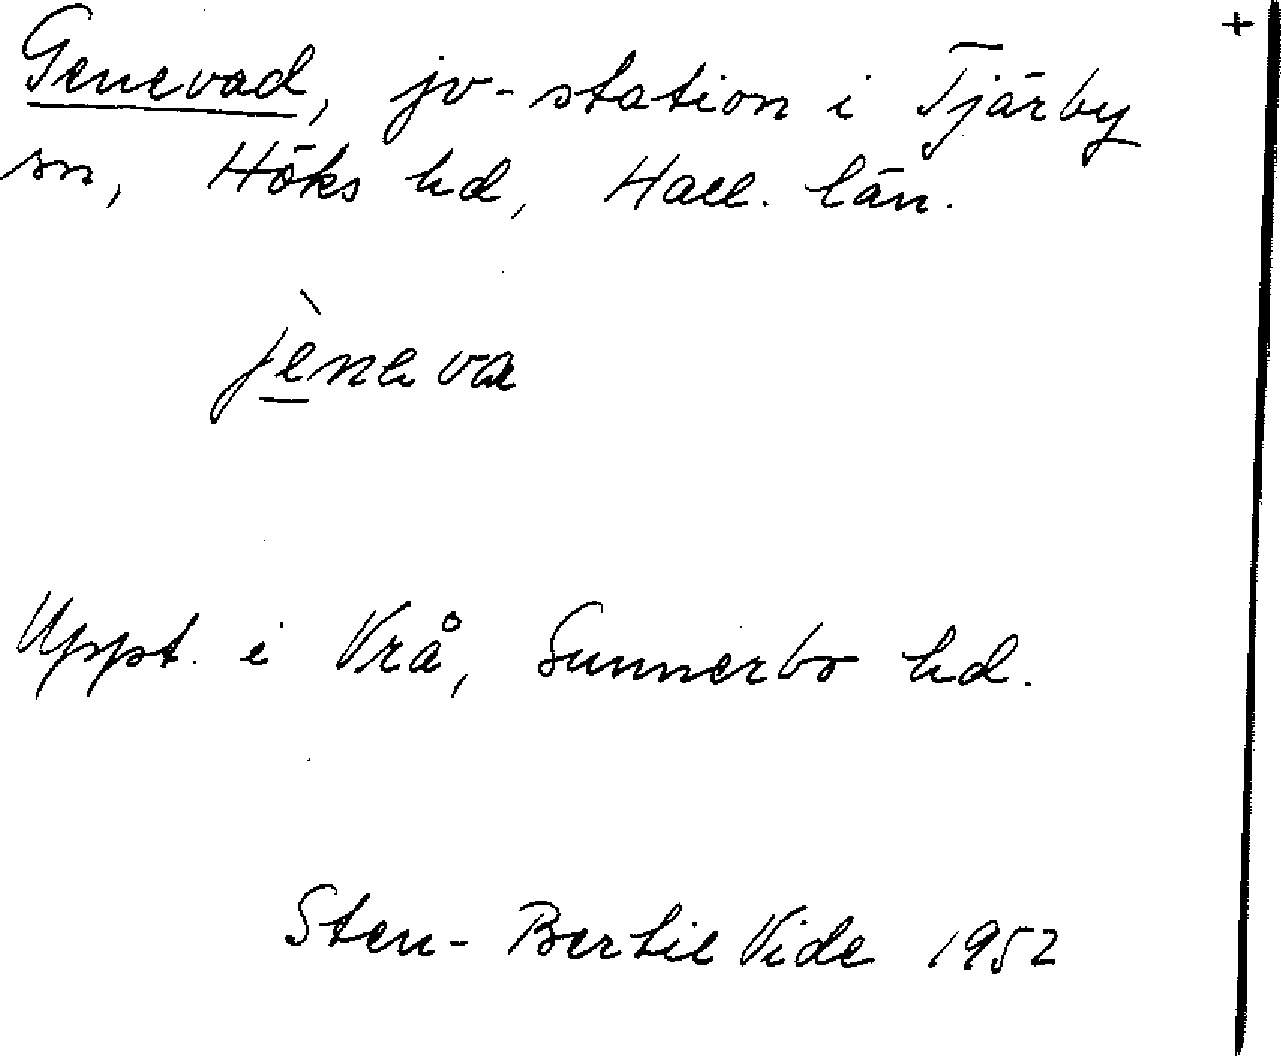 +
Genevad, jv-station i Tjärby
sn, Höks hd, Hall. län.
jèneva
Uppt. i Vrå, Sunnerbo hd.
Sten-Bertil Vide 1952